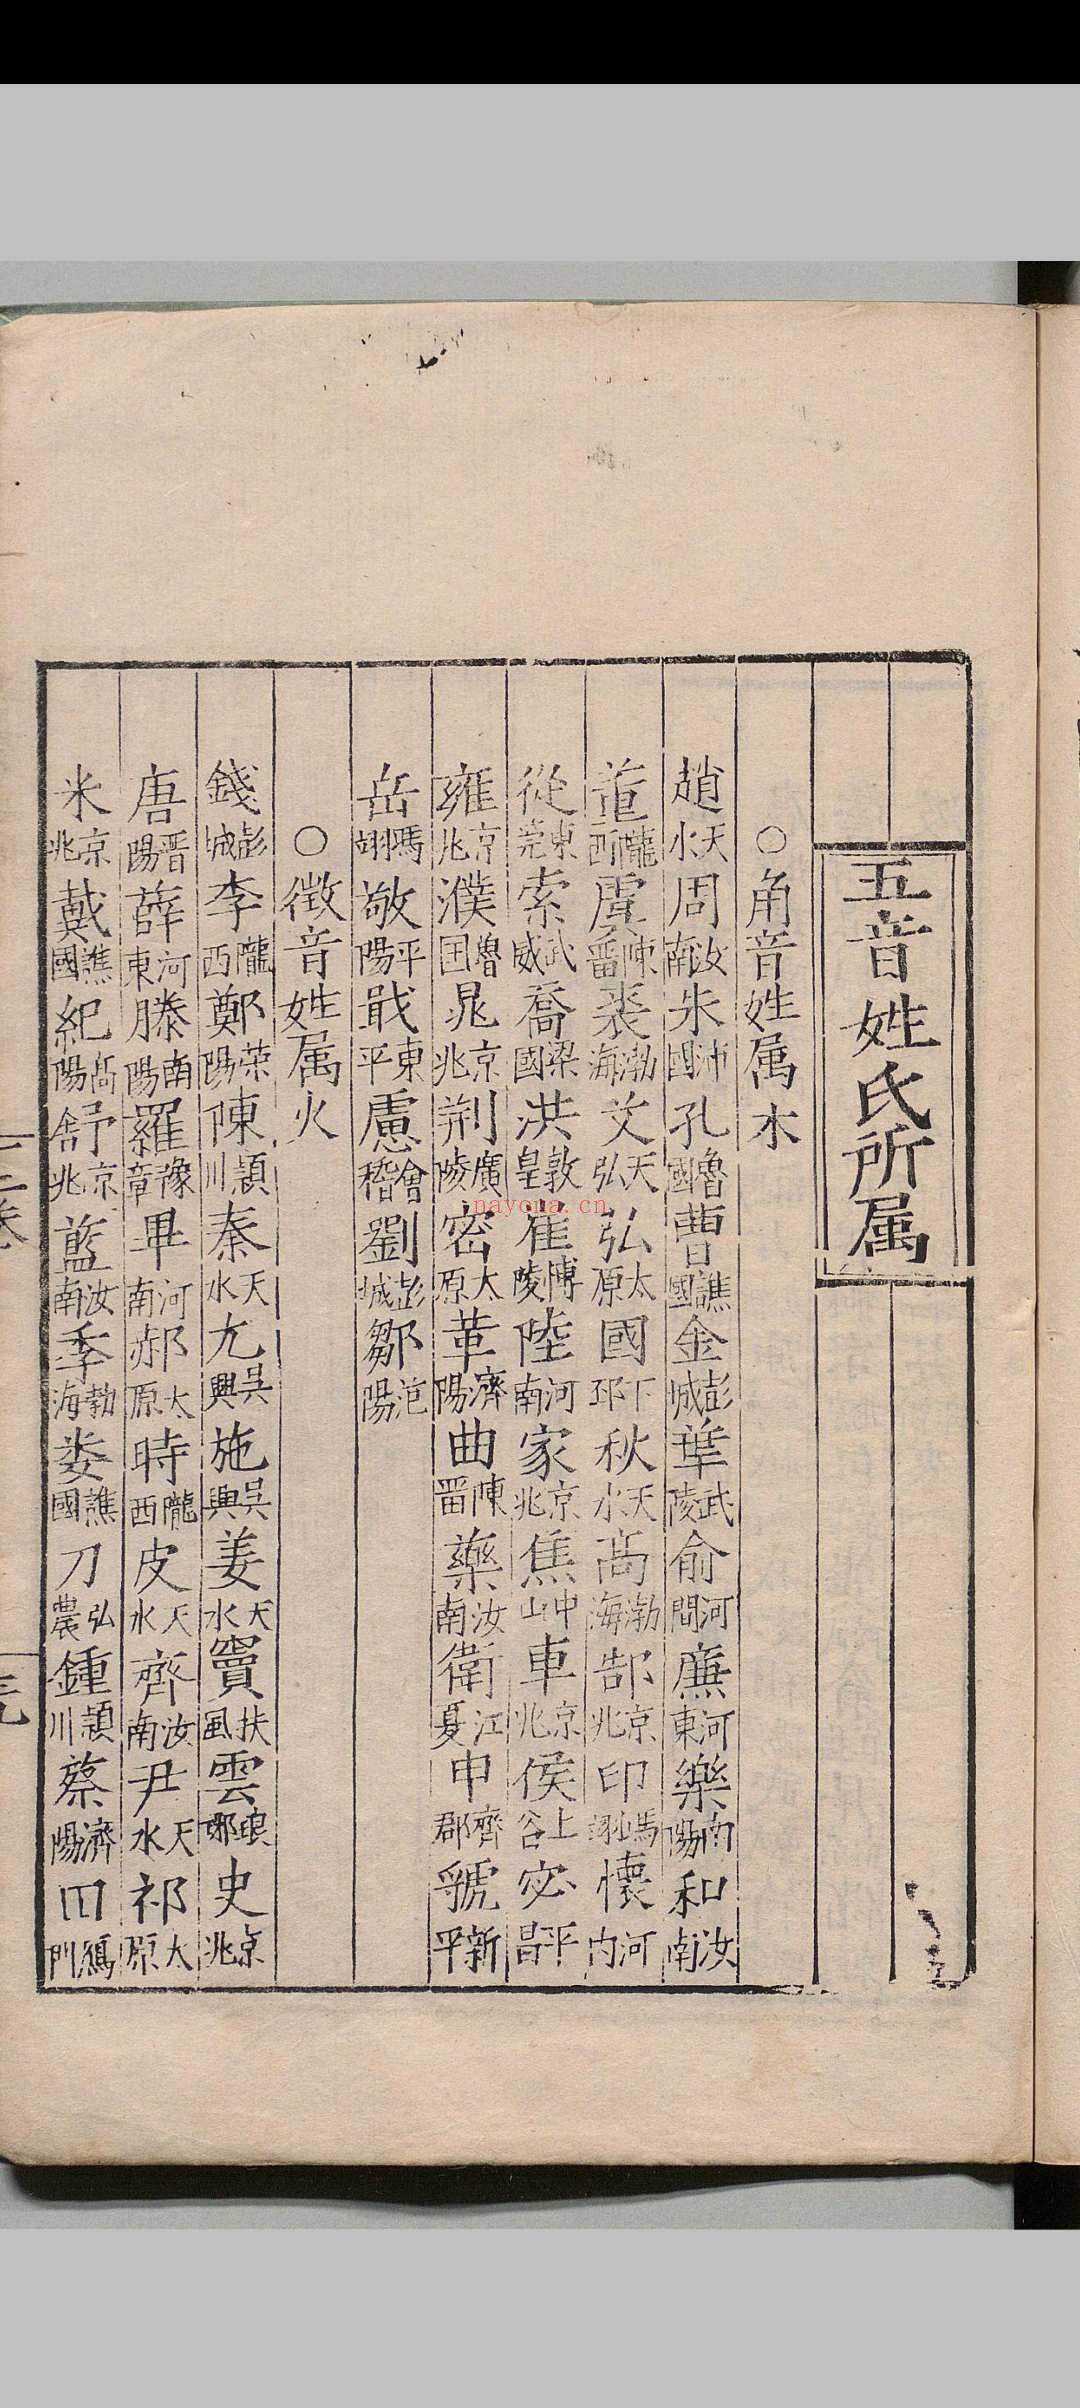 五音姓氏所属
○角音姓属木
趙天水周汝南朱沛國孔魯國曹譙國金彭城華武陵俞河間廉河東樂南陽和汝南
董隴西虞陳畱裘渤海文天弘弘太原國下邳秋天水高渤海郜京兆印馮翊懷河内
從東莞索武威喬梁國洪敦皇崔博陵陸河南家京兆焦中山車京兆侯上谷宓平昌
雍京兆濮魯国晁京兆荆廣陵密太原革濟陽曲陳畱藥汝南衛江夏申齊郡虢新平
岳馮翊敬平陽戢東平慮會稽劉彭城鄒范陽
○徵音姓属火
錢彭城李隴西鄭荣陽陳潁川秦天水尤吳興施吳興姜天水竇扶風雲琅邪史京兆
唐晋陽薛河東滕南陽羅豫章畢河南郝太原時隴西皮天水齊汝南尹天水祁太原
米京兆戴譙國紀高陽舒京兆藍汝南季勃海婁譙國刀弘農鍾潁川蔡濟陽田鴈門
nayona.cn